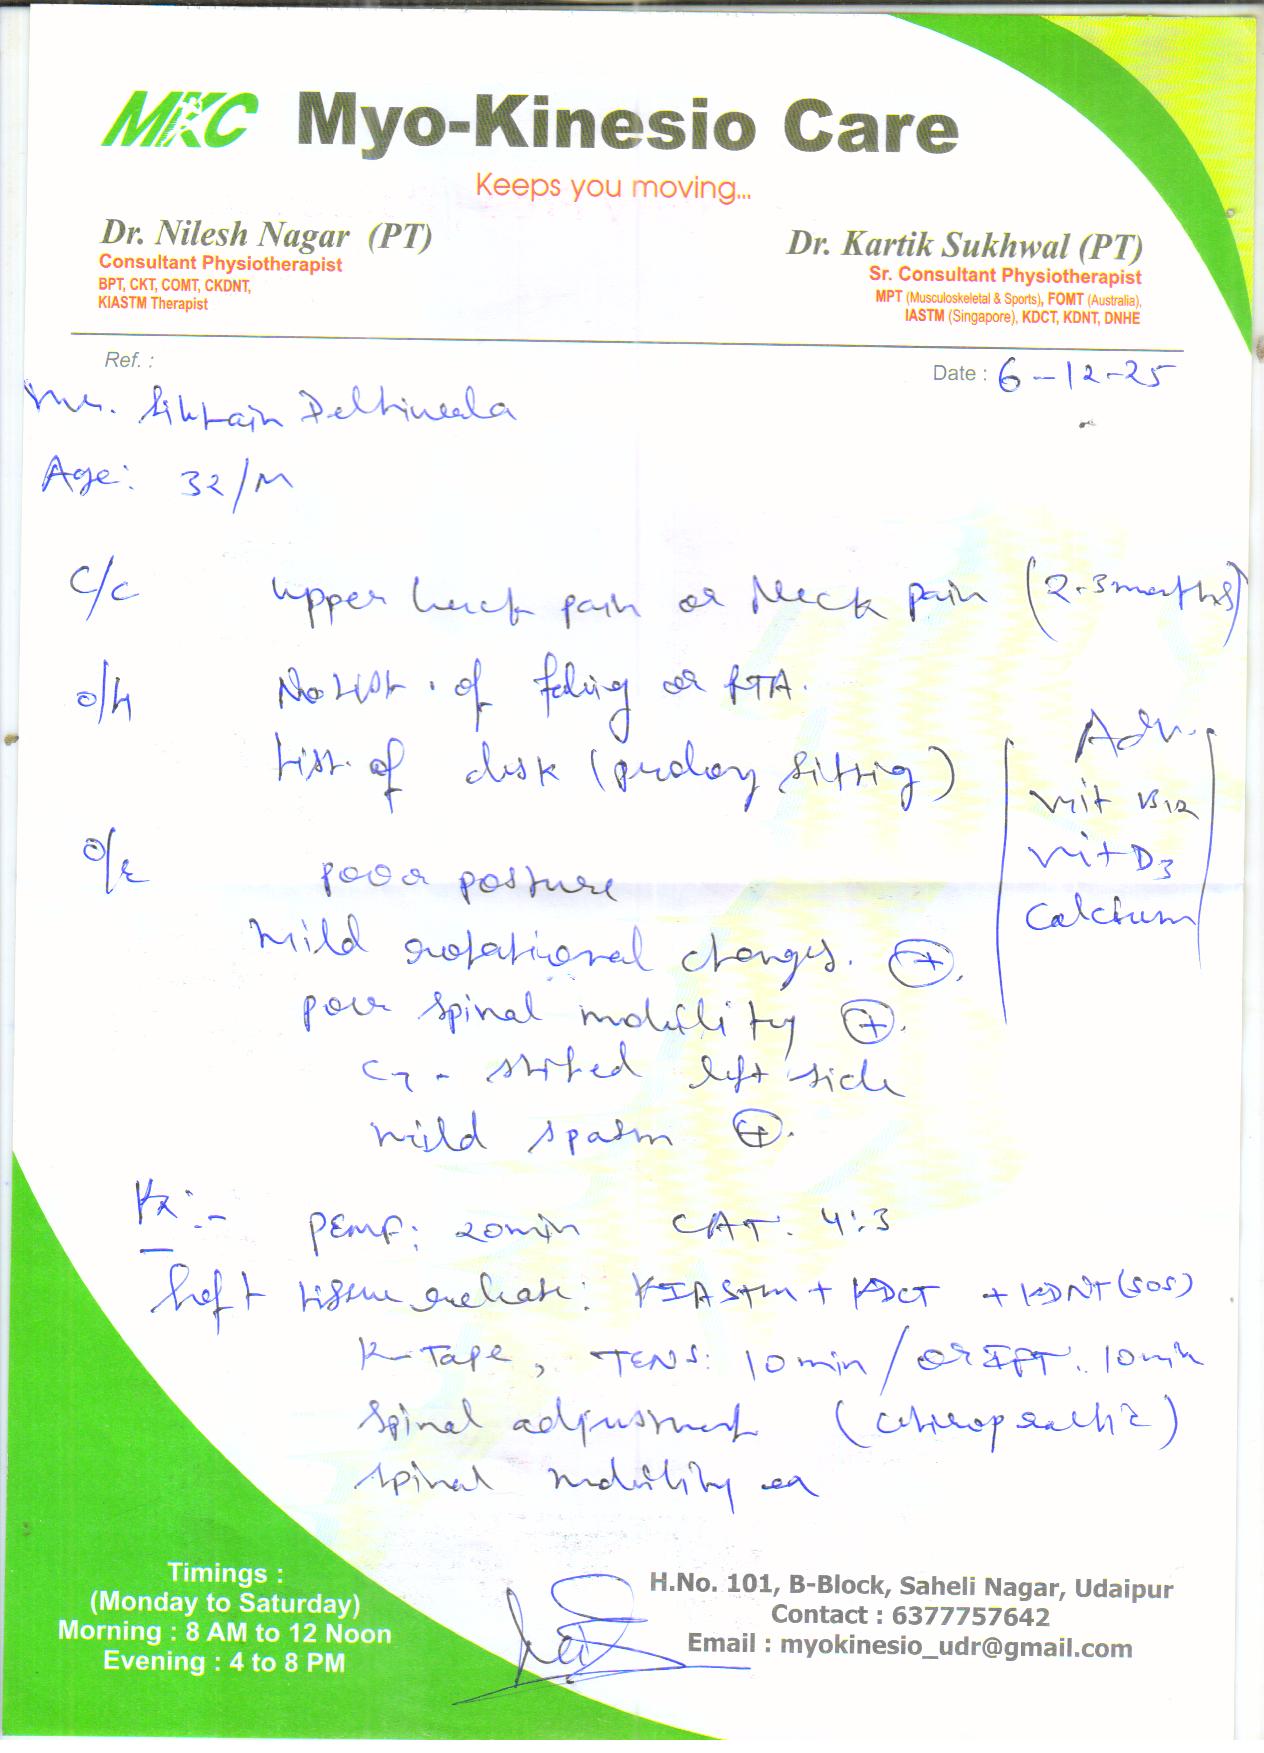 MKC Myo-Kinesio Care
Keeps you moving...
Dr. Nilesh Nagar (PT)
Consultant Physiotherapist
BPT, CKT, COMT, CKDNT,
KIASTM Therapist
Dr. Kartik Sukhwal (PT)
Sr. Consultant Physiotherapist
MPT (Musculoskeletal & Sports), FOMT (Australia),
IASTM (Singapore), KDCT, KDNT, DNHE
Ref. :
Date : 6-12-25
Mr. Delhiwala
Age: 32/M
C/C upper back pain or Neck pain (2-3 months)
O/H No Hist. of or RTA.
Hist. of desk sitting)
O/E poor posture
Mild rotational changes. (+).
poor spinal mobility (+).
C7 - shifted left side
mild spasm (+).
Adv.
Vit B12
Vit D3
Calcium
Rx:-
PEMF: 20min CAT. 4:3
Soft tissue release: KIASTM + KDCT + KDNT (SOS)
K-Tape, TENS: 10 min / or IFT. 10 min
spinal adjustment (chiropractic)
spinal mobility ex
Timings :
(Monday to Saturday)
Morning : 8 AM to 12 Noon
Evening : 4 to 8 PM
H.No. 101, B-Block, Saheli Nagar, Udaipur
Contact : 6377757642
Email : myokinesio_udr@gmail.com